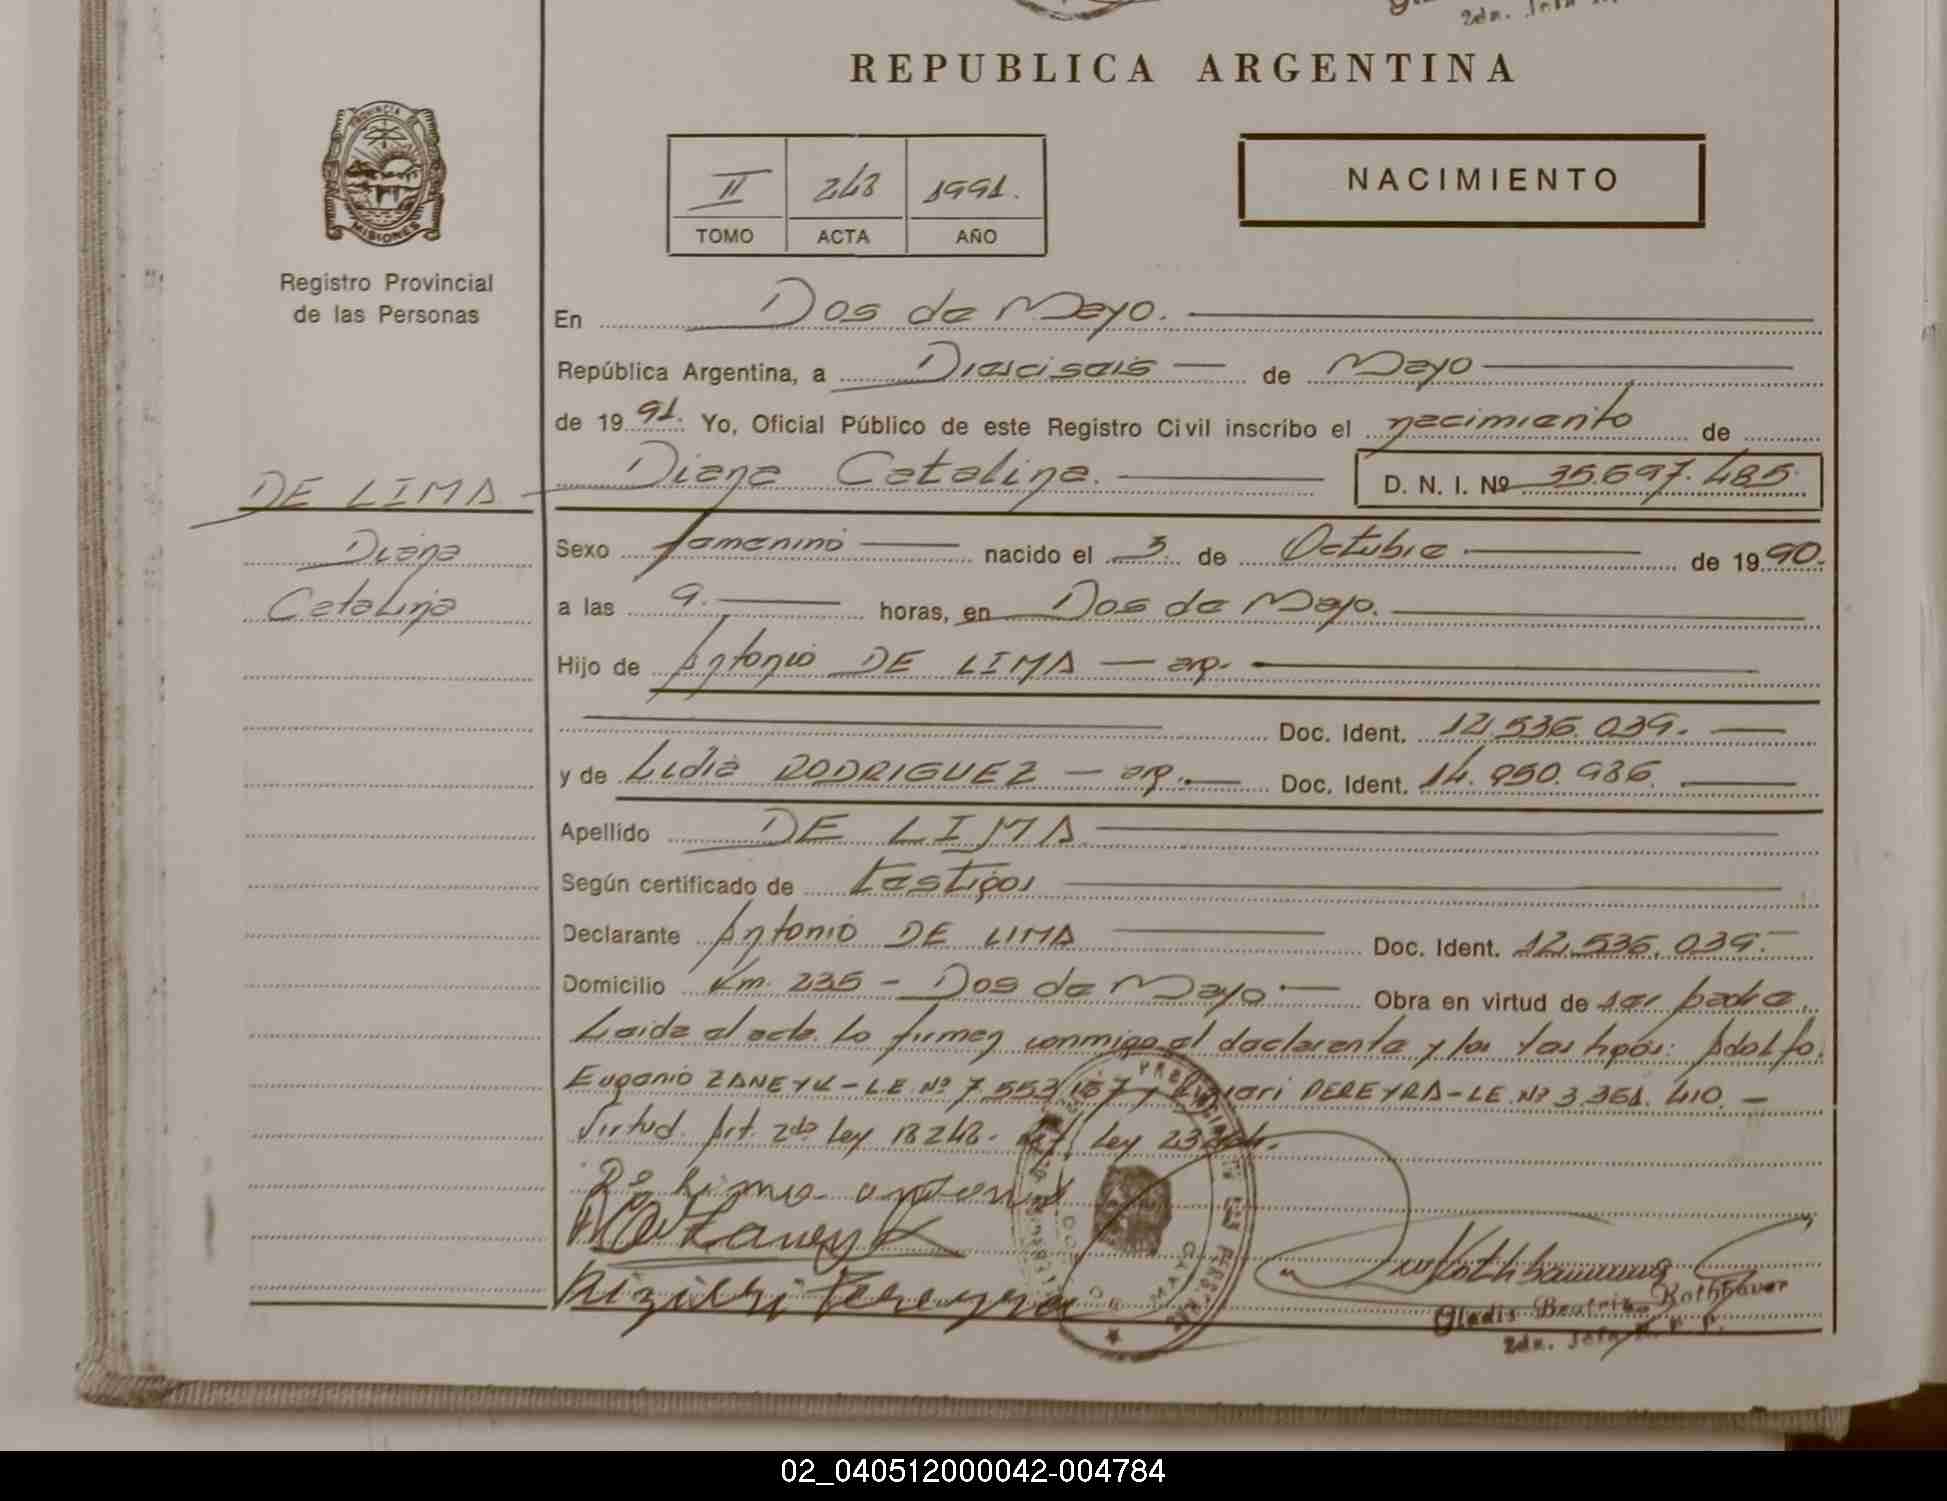 2da. Jefa
REPUBLICA ARGENTINA
PROVINCIA DE
MISIONES
II 243 1991.
TOMO ACTA AÑO
NACIMIENTO
Registro Provincial
de las Personas
En Dos de Mayo.
República Argentina, a Dieciseis de Mayo
de 19 91. Yo, Oficial Público de este Registro Civil inscribo el nacimiento de
DE LIMA
Diana
Catalina
Diana Catalina. D. N. I. Nº 35.697.485
Sexo femenino nacido el 3 de Octubre de 19 90.
a las 9. horas, en Dos de Mayo.
Hijo de Antonio DE LIMA — arg.
Doc. Ident. 12.536.039.
y de Lidia RODRIGUEZ — arg. Doc. Ident. 14.950.986.
Apellido DE LIMA
Según certificado de testigos
Declarante Antonio DE LIMA Doc. Ident. 12.536.039.
Domicilio Km. 235 - Dos de Mayo Obra en virtud de ser padre.
Leida el acta. Lo firman conmigo el declarante y los testigos: Adolfo
Eugenio ZANEYK - LE. Nº 7.553.157 y PEREYRA - LE. Nº 3.361.410. —
Virtud. Art. 2do Ley 18248. Ley
De Lima antonio
Zaneyk
Pereyra
Gladis Beatriz Rothbauer
2da. Jefa R. P. P.
02_040512000042-004784